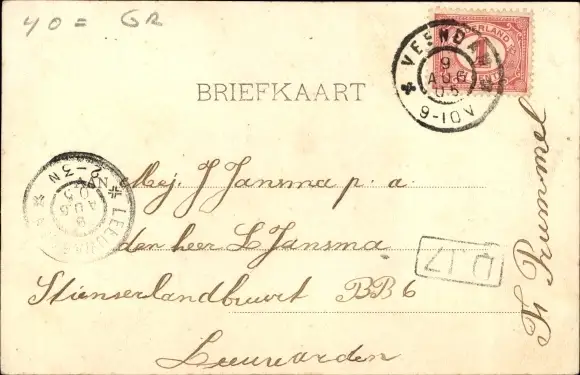 40 = GR
VEENDAM
9
AUG
05
9-10V
NEDERLAND
1
CENT
BRIEFKAART
LEEUWARDEN
2-3N
9
AUG
05
Mej. J Jansma p. a.
den heer L Jansma
Stienserlandbuurt BB 6
Leeuwarden
D.17
Tr Prummel